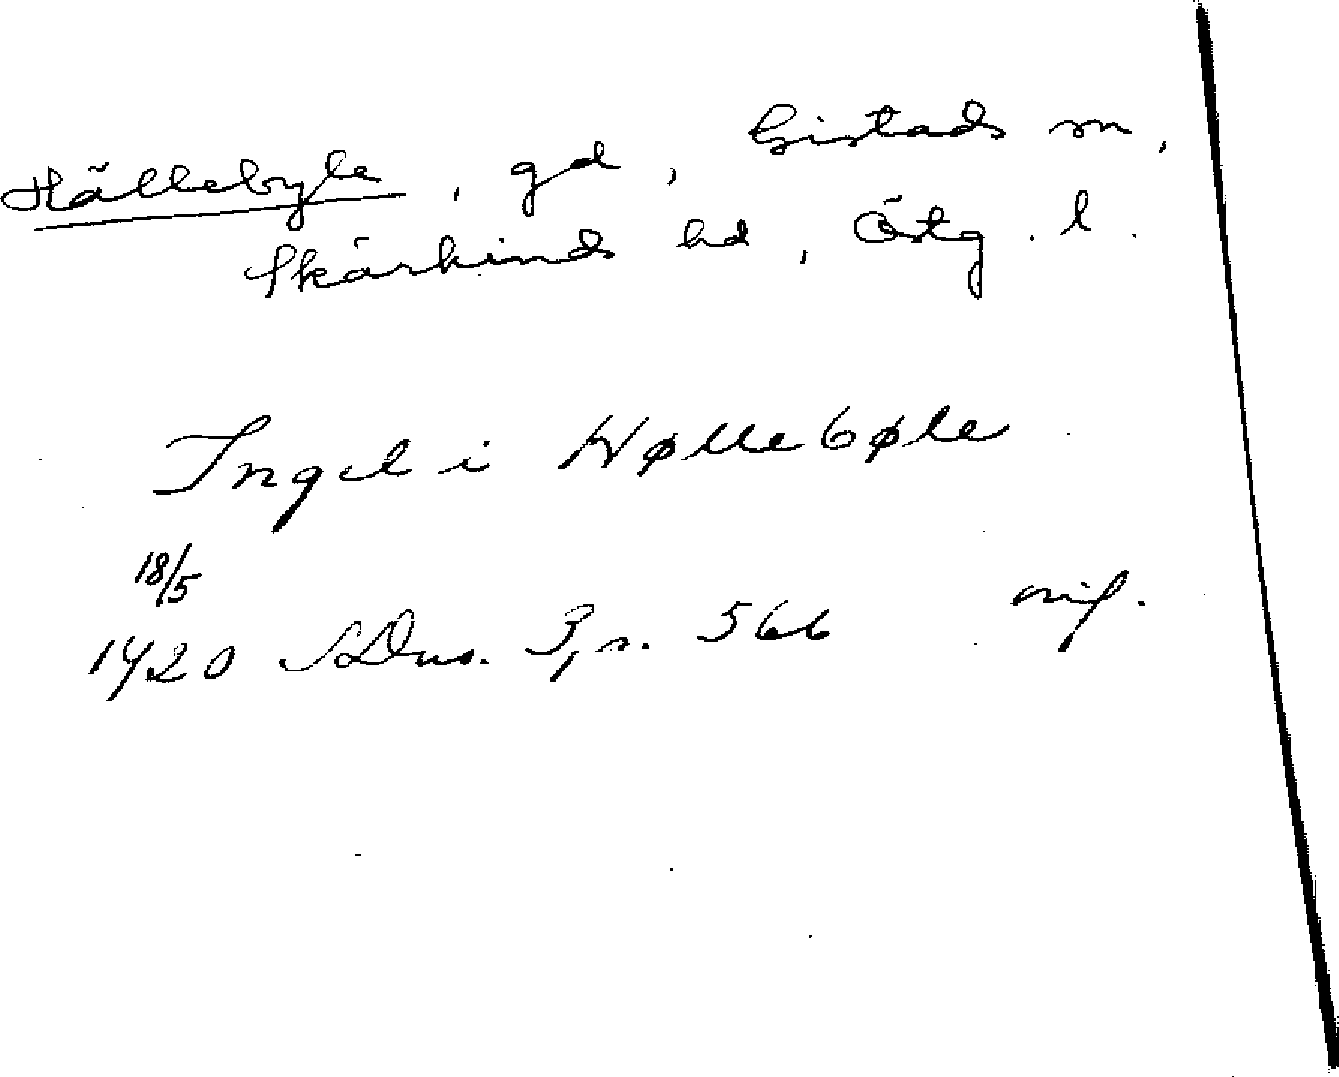 Hällebyle, gd, Gistads sn,
Skärkinds hd, Östg. l.
Ingel i Høllebøle
18/5
1420 SDns. 3, s. 566 nif.